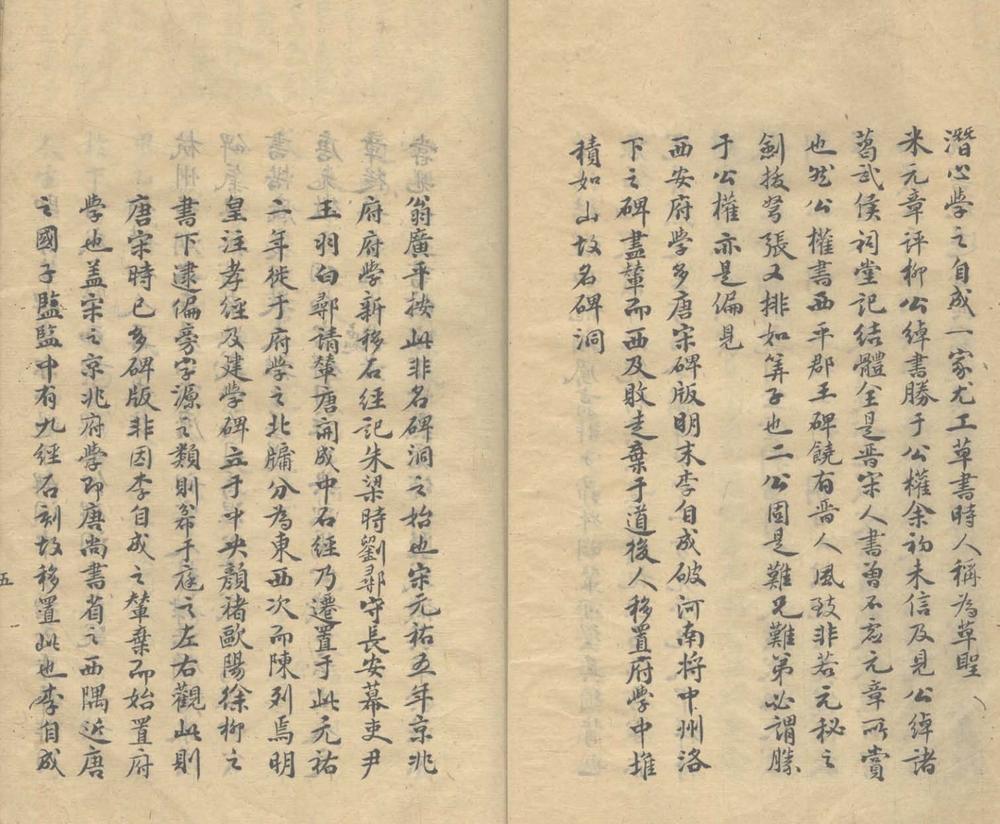 潛心學之自成一家尤工草書時人稱為草聖
米元章評柳公綽書勝于公權余初未信及見公綽諸
葛武侯祠堂記結體全是晋宋人書曾不意元章所賞
也然公權書西平郡王碑饒有晋人風致非若元秘之
劍拔弩張又排如筭子也二公固是難兄難弟必謂勝
于公權亦是偏見
西安府學多唐宋碑版明末李自成破河南将中州洛
下之碑盡輦而西及敗走棄于道後人移置府學中堆
積如山故名碑洞
翁廣平按此非名碑洞之始也宋元祐五年京兆
府府學新移石經記朱梁時劉鄩守長安幕吏尹
玉羽白鄩請輦唐開成中石經乃遷置于此元祐
二年徙于府學之北牖分為東西次而陳列焉明
皇注孝經及建學碑立于中央顏褚歐陽徐柳之
書下逮偏旁字源之類則分布于庭之左右觀此則
唐宋時已多碑版非因李自成之輦棄而始置府
學也盖宋之京兆府學即唐尚書省之西隅近唐
之國子監監中有九經石刻故移置此也李自成
五